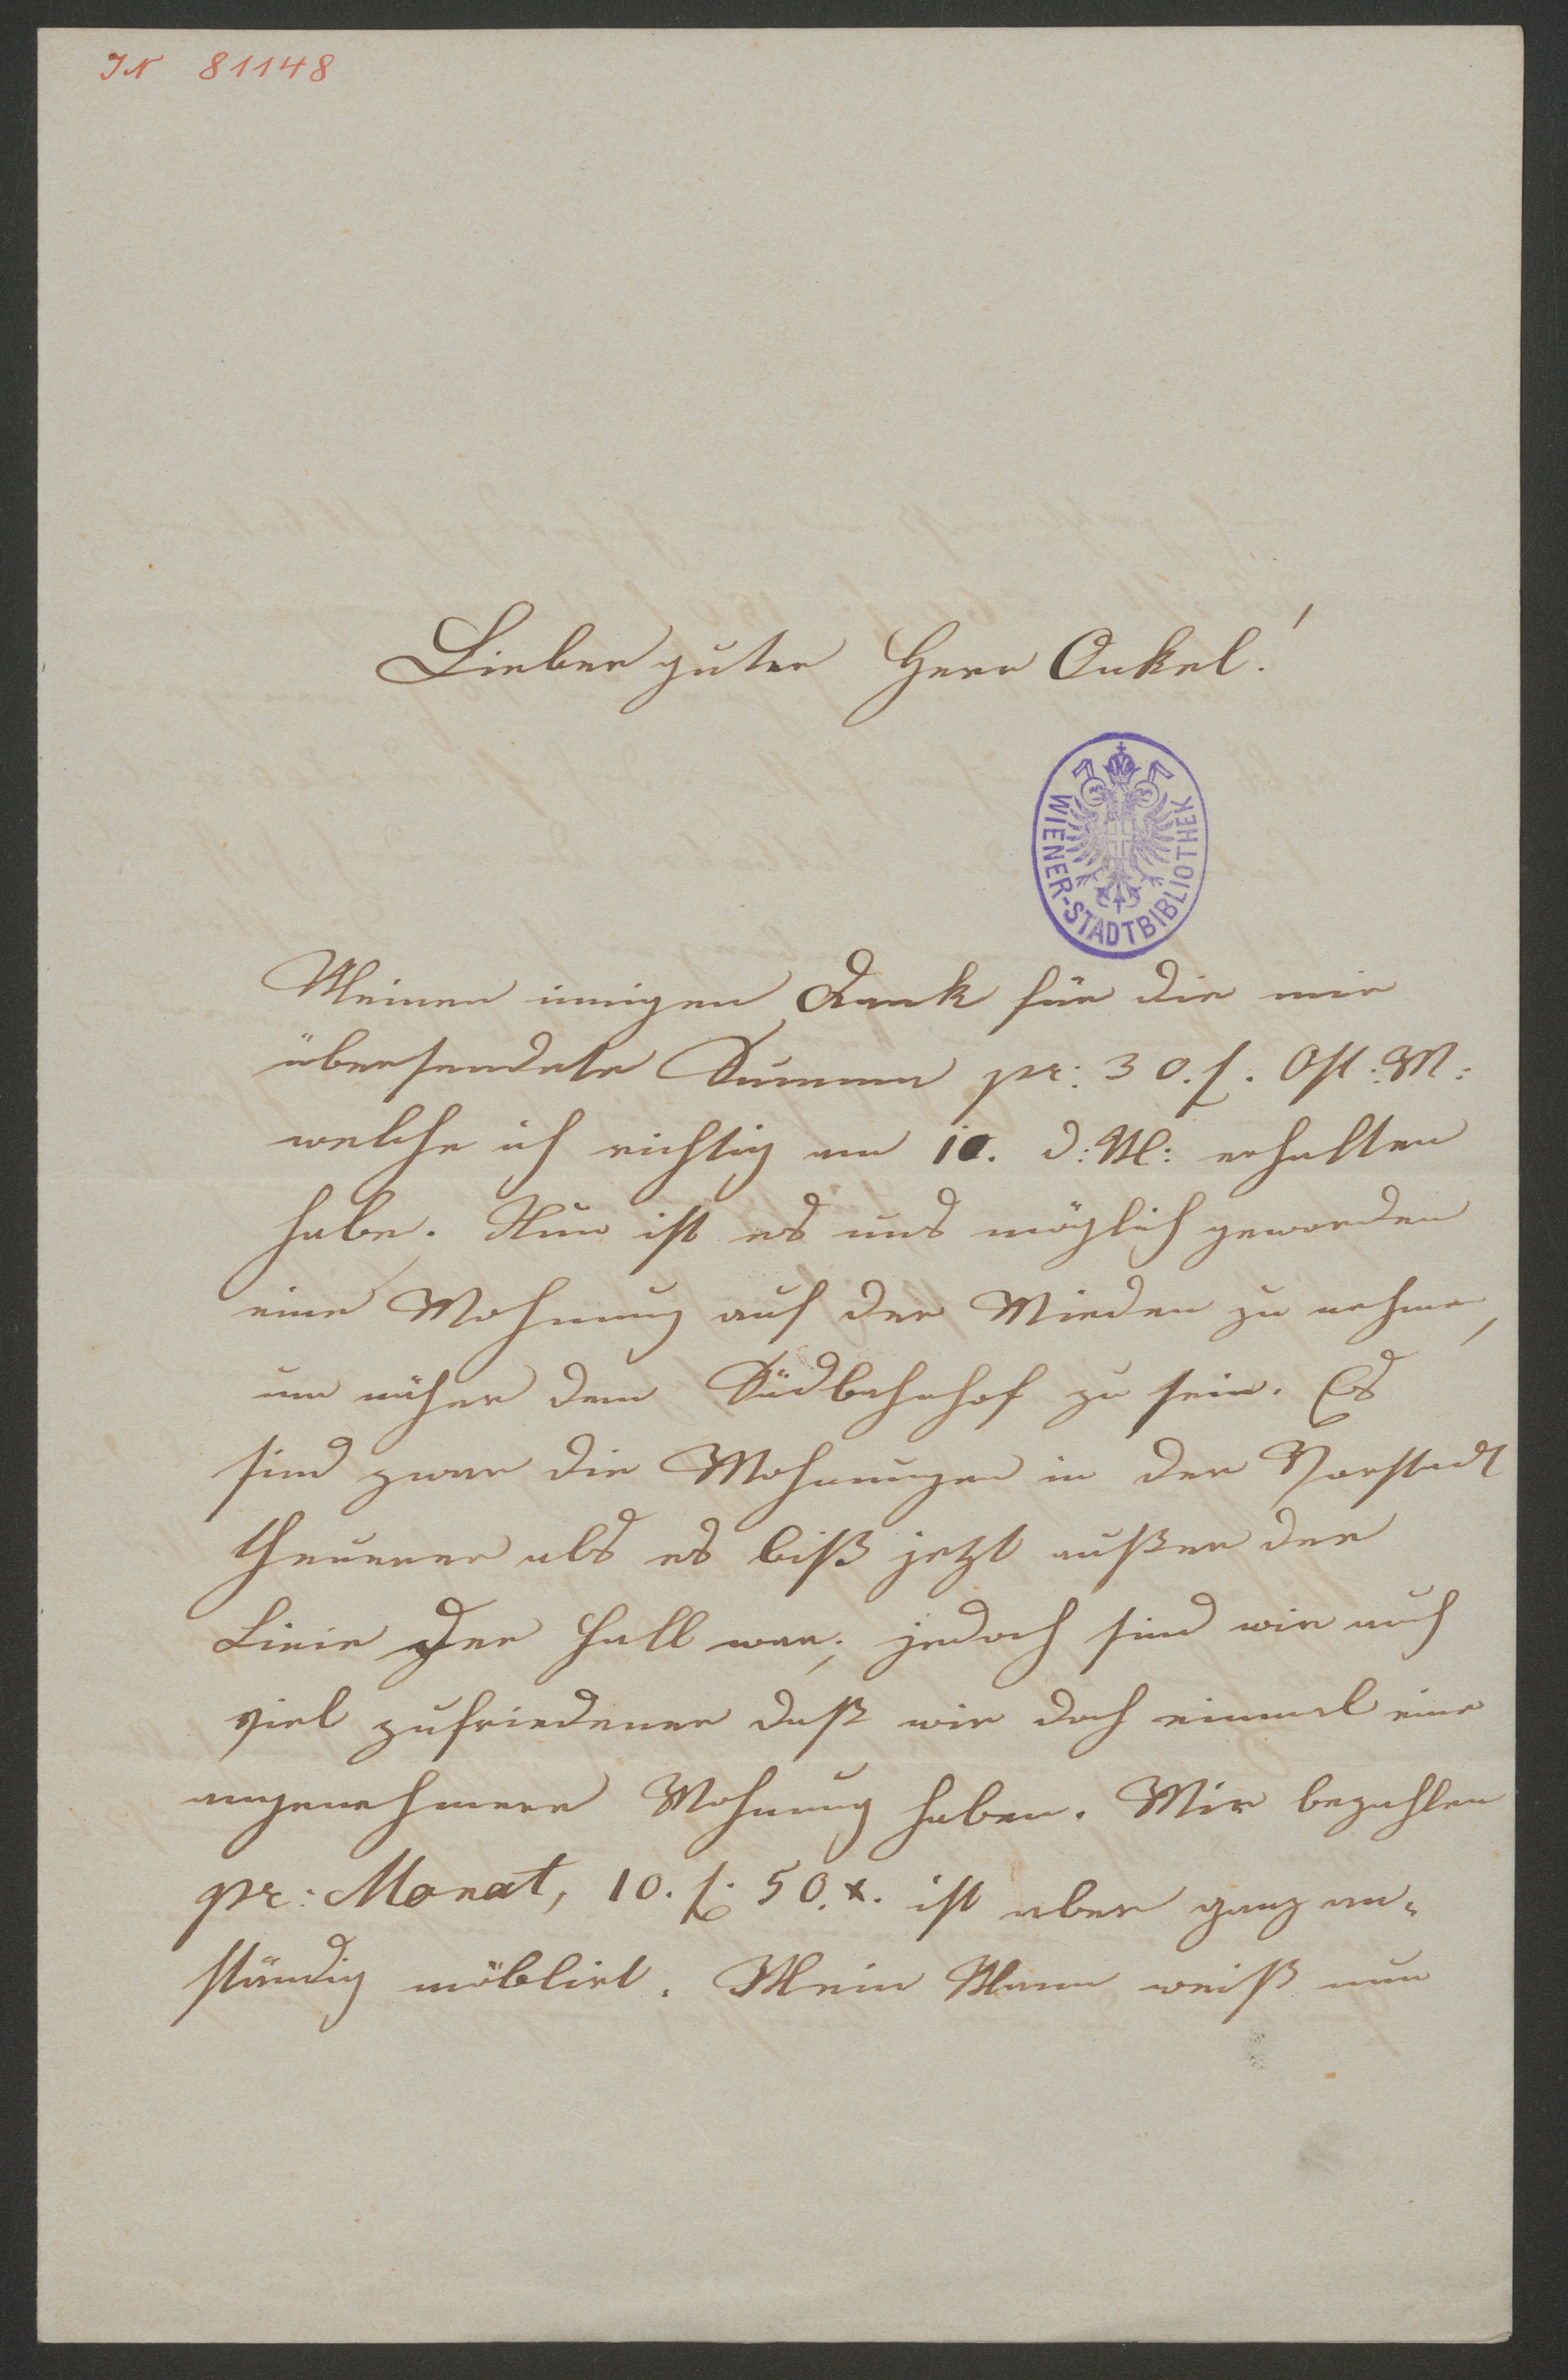 IN 81148
Lieber guter Herr Onkel!
WIENER-STADTBIBLIOTHEK
Meinen innigen Dank für die mir
übersendete Summe pr: 30.f. Öst: M:
welche ich richtig am 10. d: M: erhalten
habe. Nun ist es uns möglich geworden
eine Wohnung auf der Wieden zu nehmen,
um näher dem Südbahnhof zu sein. Es
sind zwar die Wohnungen in der Vorstadt
theuerer als es biß jetzt außer der
Linie der Fall war; jedoch sind wir auch
viel zufriedener daß wir doch einmal eine
angenehmere Wohnung haben. Wir bezahlen
pr: Monat, 10. f: 50.x. ist aber ganz an-
ständig möblirt. Mein Mann weiß nun